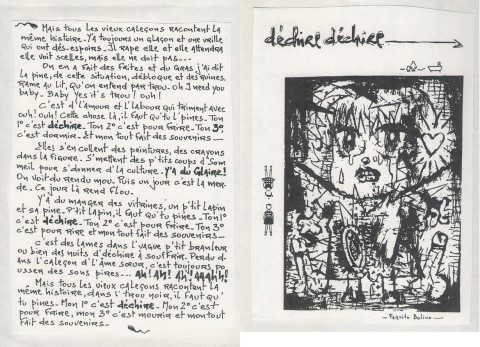 Mais tous les vieux caleçons racontent la
même histoire. Y'a toujours un glaçon et une vrille
qui ont des-espoirs. Il rape elle et elle attendra
elle voit scelles, mais elle ne doit pas---
On en a fait des frites et du Gras j'ai dit
la pine, de cette situation, débloque et des ruines.
Rame au lit, qu'on entend par trou. Oh I need you
baby. Baby yes it's trou! ouh!
C'est d'l'Amour et d'l'Labour qui triment avec
ouh! ouh! Cette chose là, il faut qu'tu l'pines. Ton
1° c'est déchire. Ton 2° c'est pour faire. Ton 3°
c'est dormir. Et mon tout fait des souvenirs—
Elles s'en collent des peintures, des crayons
dans la figure. S'mettent des p'tits coups d'Som
meil pour s'donner d'la culture. Y'A du Glaire!
On voit du rendu mou. Puis un jour c'est la mer-
de. Ce jour là rend flou.
Y'a du manger des vitrines, un p'tit lapin
et sa pine. P'tit lapin, il faut qu'tu pines. Ton 1°
c'est déchire. Ton 2° c'est pour frire. Ton 3°
c'est pour rire et mon tout fait des souvenirs—
C'est des lames dans l'vague p'tit branleur
ou bien des nuits d'déchire à souffrir. Perdu d
ans l'caleçon d'l'Âme sœur, c'est toujours po
usser des sons pires... Ah! Ah! Ah! Aaahh!
Mais tous les vieux caleçons racontent la
même histoire, dans l'trou noir, il faut qu'
tu pines. Mon 1° c'est déchire. Mon 2° c'est
pour faire, mon 3° c'est mourir et mon tout
fait des souvenirs—
déchire déchire
Paquito Bolino